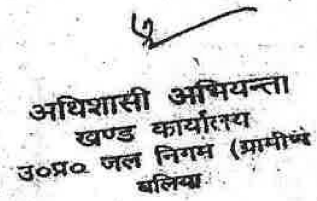 अधिशासी अभियन्ता
खण्ड कार्यालय
उ०प्र० जल निगम (ग्रामीण)
बलिया